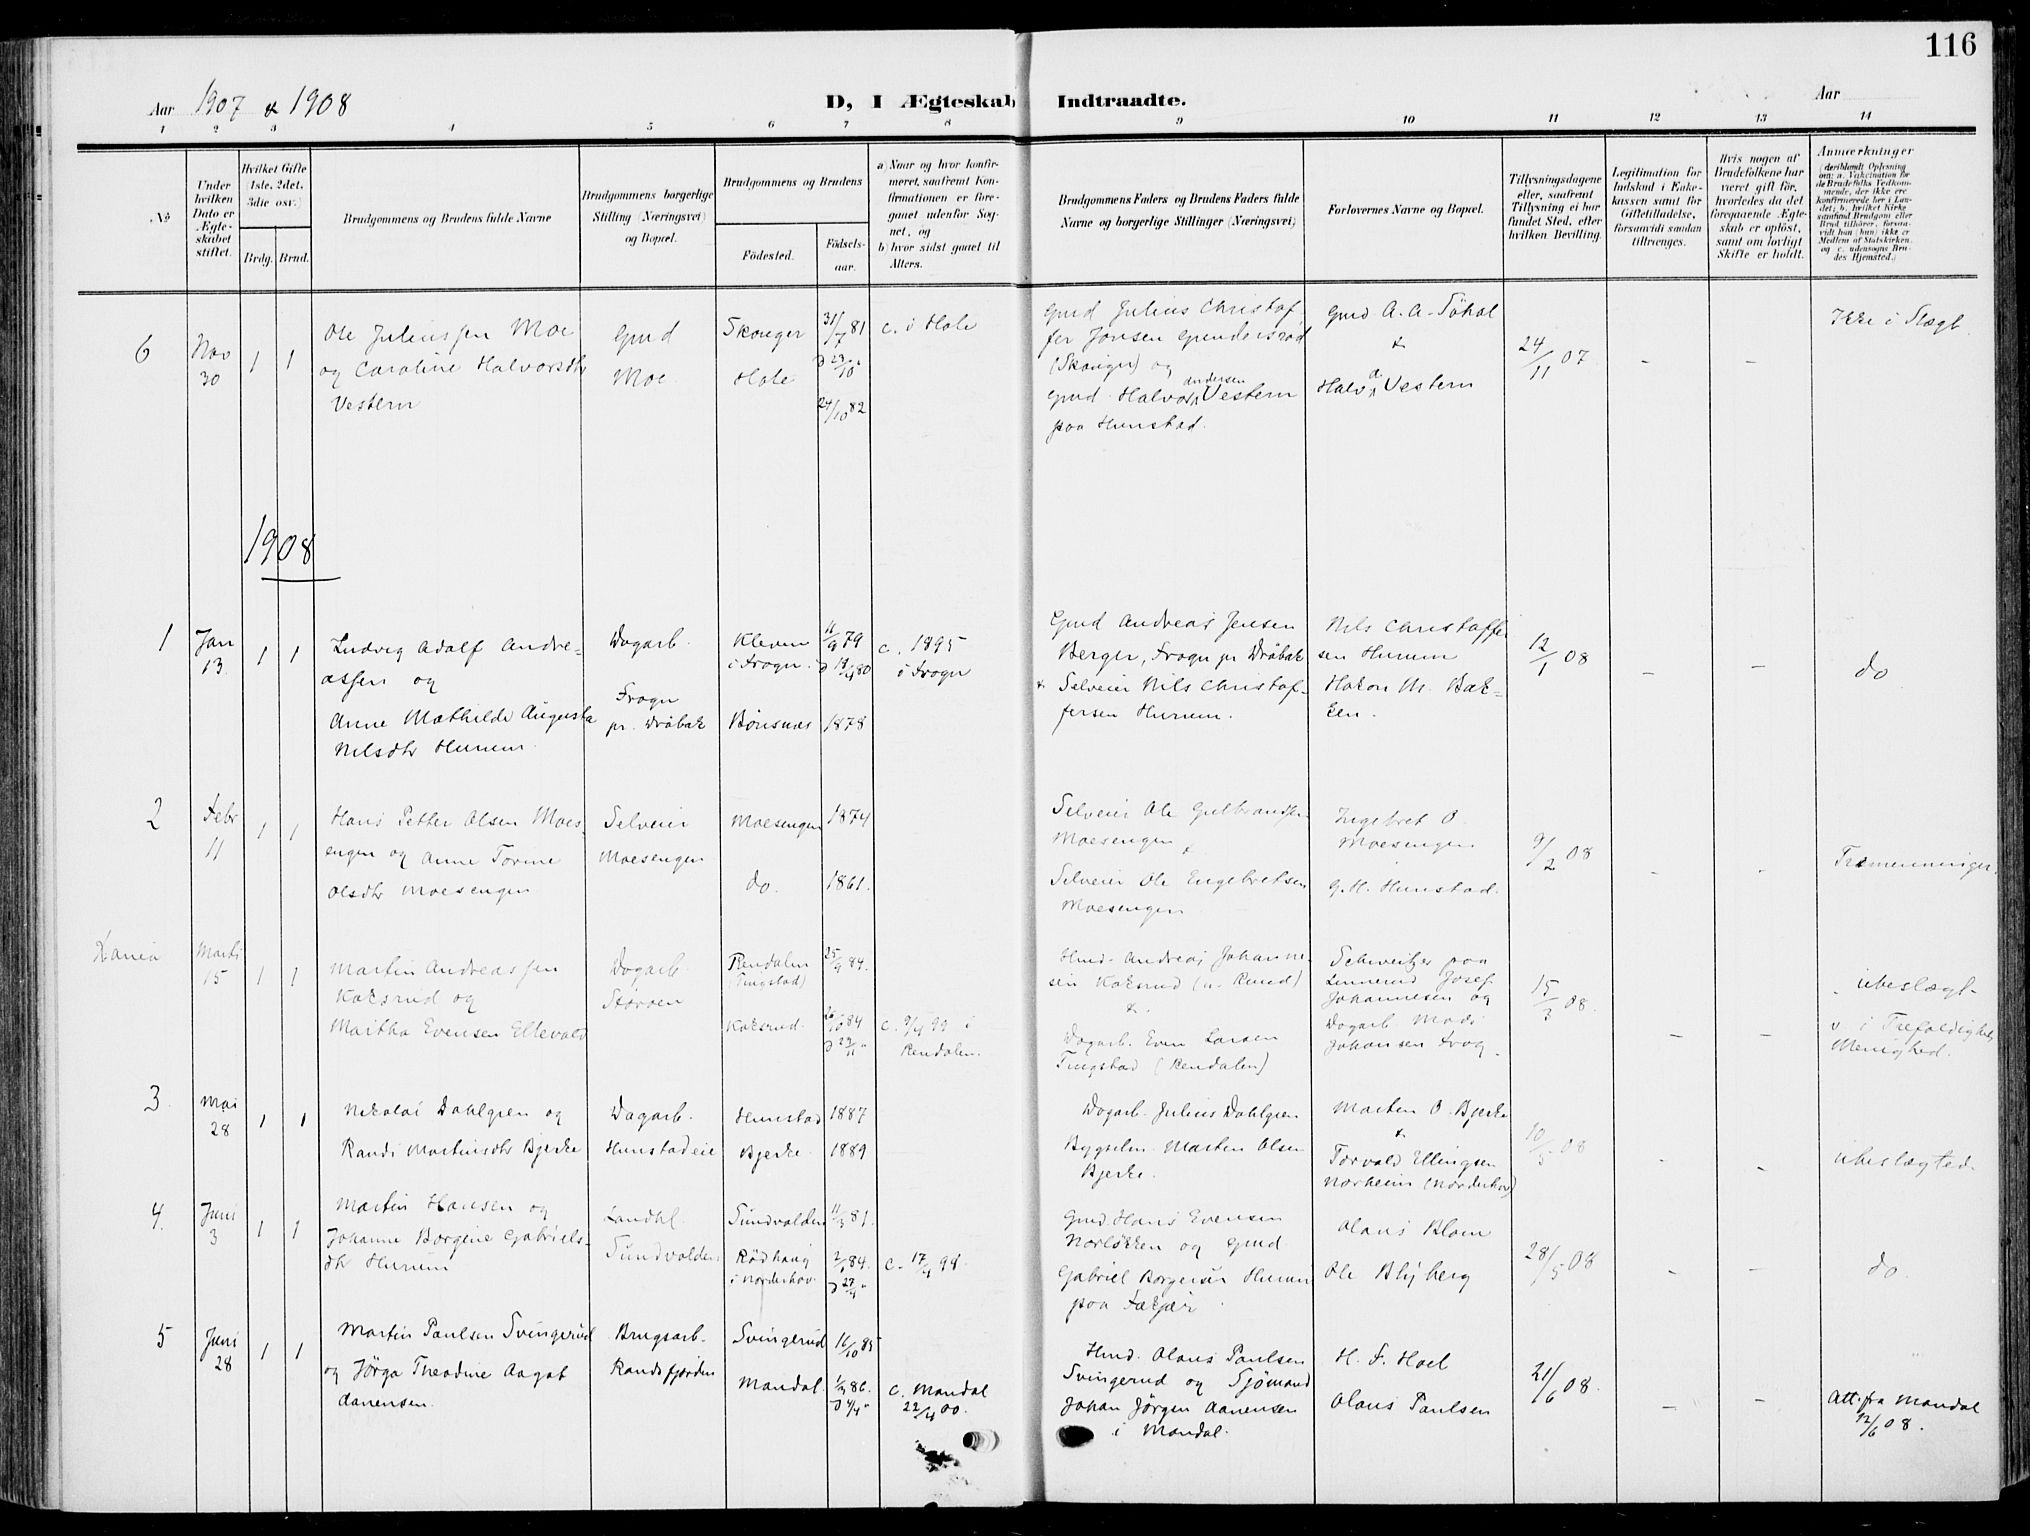 116
Aar 1907 & 1908
D, I Ægteskab Indtraadte.
Aar
1 2 3 4 5 6 7 8 9 10 11 12 13 14
No
Under hvilken Dato er Ægteskabet stiftet.
Hvilket Gifte (1ste, 2det, 3die osv.)
Brdg. Brud.
Brudgommens og Brudens fulde Navne
Brudgommens borgerlige Stilling (Næringsvei) og Bopæl.
Brudgommens og Brudens
Fødested.
Fødselsaar.
a) Naar og hvor konfirmeret, saafremt Konfirmationen er foregaaet udenfor Sognet, og
b) hvor sidst gaaet til Alters.
Brudgommens Faders og Brudens Faders fulde Navne og borgerlige Stillinger (Næringsvei)
Forlovernes Navne og Bopæl.
Tillysningsdagene eller, saafremt Tillysning ei har fundet Sted, efter hvilken Bevilling.
Legitimation for Indskud i Enkekassen samt for Giftetilladelse, forsaavidt saadan tiltrænges.
Hvis nogen af Brudefolkene har været gift før, hvorledes da det foregaaende Ægteskab er opløst, samt om lovligt Skifte er holdt.
Anmærkninger
(deriblandt Oplysning om: a. Vakcination for de Brudefolks Vedkommende, der ikke ere konfirmerede her i Landet; b. hvilket Kirkesamfund Brudgom eller Brud tilhører, forsaavidt han (hun) ikke er Medlem af Statskirken, og c. udensogns Brudes Hjemsted.)
6 Nov 30 1 1
Ole Juliussen Moe
og Caroline Halvorsdtr
Vestern
Gmd
Moe
Skouger 31/7 81
D 23/10 "
Hole 24/10 82
c. i Hole
Gmd Julius Christof-
fer Jonsen Gundersrød
(Skouger) og
Gmd. Halvor Andersen Vestern
paa Hunstad.
Gmd A. A. Søhol
&
Halv. A. Vestern
24/11 07
-
-
Ikke i Slægt
1908
1 Jan 13. 1 1
Ludvig Adolf Andre-
assen og
Anne Mathilde Augusta
Nilsdtr Hurum.
Dagarb.
Frogn
pr. Drøbak
Kleven
i Frogn.
11/9 79
Bønsnæs 1878
c. 1895
i Frogn
Gmd Andreas Jensen
Berger, Frogn pr Drøbak
& Selveier Nils Christof-
fersen Hurum.
Nils Christoffer
sen Hurum
Hakon M. Bak-
ken.
12/1 08
-
-
do
2 Febr 11 1 1
Hans Petter Olsen Moes-
engen og Anne Torine
Olsdtr Moesengen
Selveier
Moesengen
Moesengen 1874
do. 1861.
Selveier Ole Gulbrandsen
Moesengen &
Selveier Ole Engebretsen
Moesengen
Ingebret O.
Moesengen
G. H. Hunstad.
9/2 08
-
-
Tremenninger.
Marts 15 1 1
Martin Andreassen
Koksrud og
Martha Evensen Ellevold
Dagarb.
Støroen
Rendalen
(Tingstad)
25/9 84.
Koksrud. 20/10 84
c. 9/4 99 i
Rendalen.
Hmd. Andreas Johanne-
sen Koksrud
&.
Dagarb. Even Larsen
Tingstad (Rendalen)
Schweitzer paa
Linnerud Josef
Johannesen og
Dagarb Mads
Johansen Frog.
15/3 08.
-
-
ubeslægt-
v. i Trefoldigheds
Menighed.
3. Mai 28 1 1
Nikolai Dahlgren og
Randi Martinsdtr Bjerke
Dagarb.
Hunstadeie
Hunstad 1887
Bjerke. 1889
Dagarb. Julius Dahlgren
Bygselm. Marten Olsen
Bjerke.
Marten O. Bjerke
&
Torvald Ellingsen
Norheim (Norderhov)
10/5 08
-
-
ubeslægted.
4. Juni 3 1 1
Martin Hansen og
Johanne Borgine Gabriels-
dtr Hurum
Landhl
Sundvolden
Sundvolden 11/3 81.
Rødhaug
i Norderhov.
2/1 84.
c. 17/4 98
Gmd. Hans Evensen
Norløkken og Gmd
Gabriel Borgersen Hurum
paa Fækjær.
Olaus Blom
Ole Blyberg
28/5 08
-
-
do.
5 Juni 28 1 1
Martin Paulsen Svingerud
og Jørga Theodine Aagot
Aanensen.
Brugsarb.
Randsfjorden
Svingerud 16/10 85
Mandal. 1/3 86.
D 4/4 "
c. Mandal
22/4 00.
Hmd. Olaus Paulsen
Svingerud og Sjømand
Johan Jørgen Aanensen
i Mandal.
H. F. Hoel
Olaus Paulsen
21/6 08.
-
-
Att. fra Mandal
12/6 08.